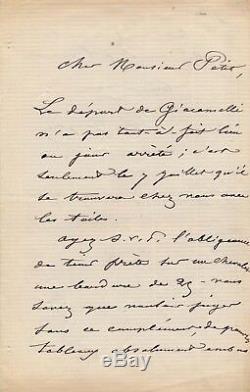 Cher Monsieur Petit,
Le départ de Giacomelli
n'a pas tout à fait lieu
au jour arrêté ; c'est
seulement le 7 juillet qu'il
se trouvera chez nous avec
les toiles.
ayez s.v.p. l'obligeance
de tenir prête sur un chevalet
une bordure de 25 - nous
savez que vouloir juger
sans ce complément de
tableaux absolument